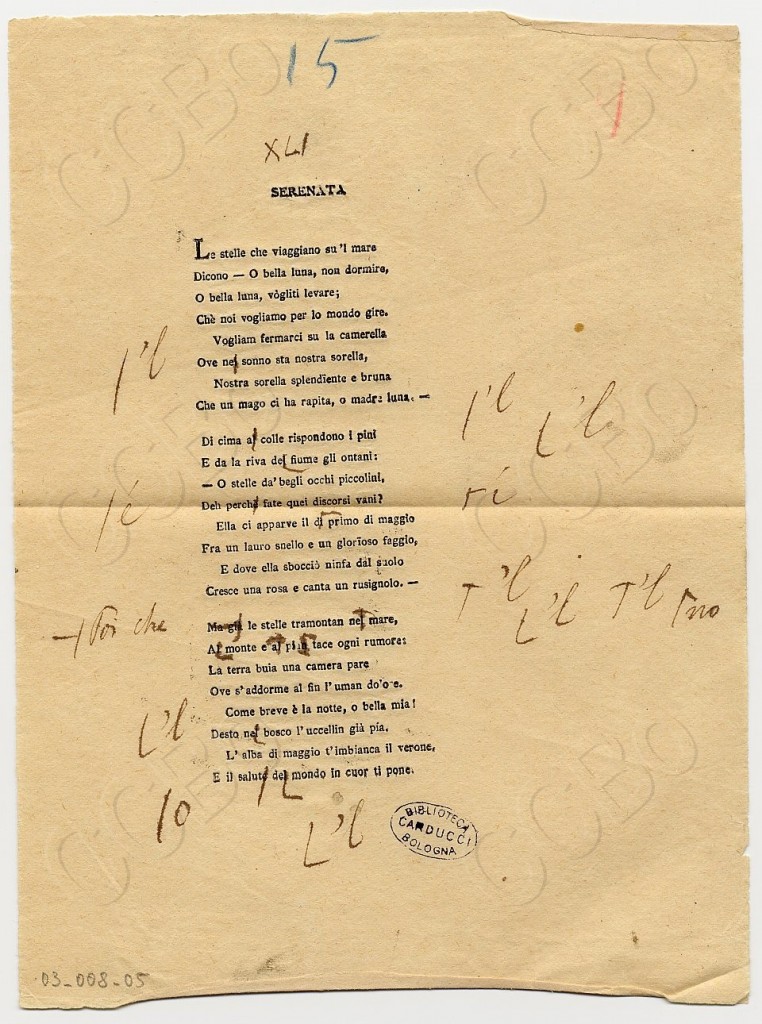 15
XLI
SERENATA
Le stelle che viaggiano su 'l mare
Dicono — O bella luna, non dormire,
O bella luna, vògliti levare;
Chè noi vogliamo per lo mondo gire.
Vogliam fermarci su la camerella
Ove nel sonno sta nostra sorella,
Nostra sorella splendïente e bruna
Che un mago ci ha rapita, o madre luna. —
Di cima al colle rispondono i pini
E da la riva del fiume gli ontani:
— O stelle da' begli occhi piccolini,
Deh perchè fate quei discorsi vani?
Ella ci apparve il dì primo di maggio
Fra un lauro snello e un glorïoso faggio,
E dove ella sbocciò ninfa dal suolo
Cresce una rosa e canta un rusignolo. —
Ma già le stelle tramontan nel mare,
Al monte e al pian tace ogni rumore:
La terra buia una camera pare
Ove s'addorme al fin l'uman dolore.
Come breve è la notte, o bella mia!
Desto nel bosco l'uccellin già pía.
L'alba di maggio t'imbianca il verone,
E il salute del mondo in cuor ti pone.
'l
'l 'l
é
í
'l 'l 'l no
Poi che
'l
o
'l
BIBLIOTECA
CARDUCCI
BOLOGNA
03-008-05
CCBo
CCBo
CCBo
CCBo
CCBo
CCBo